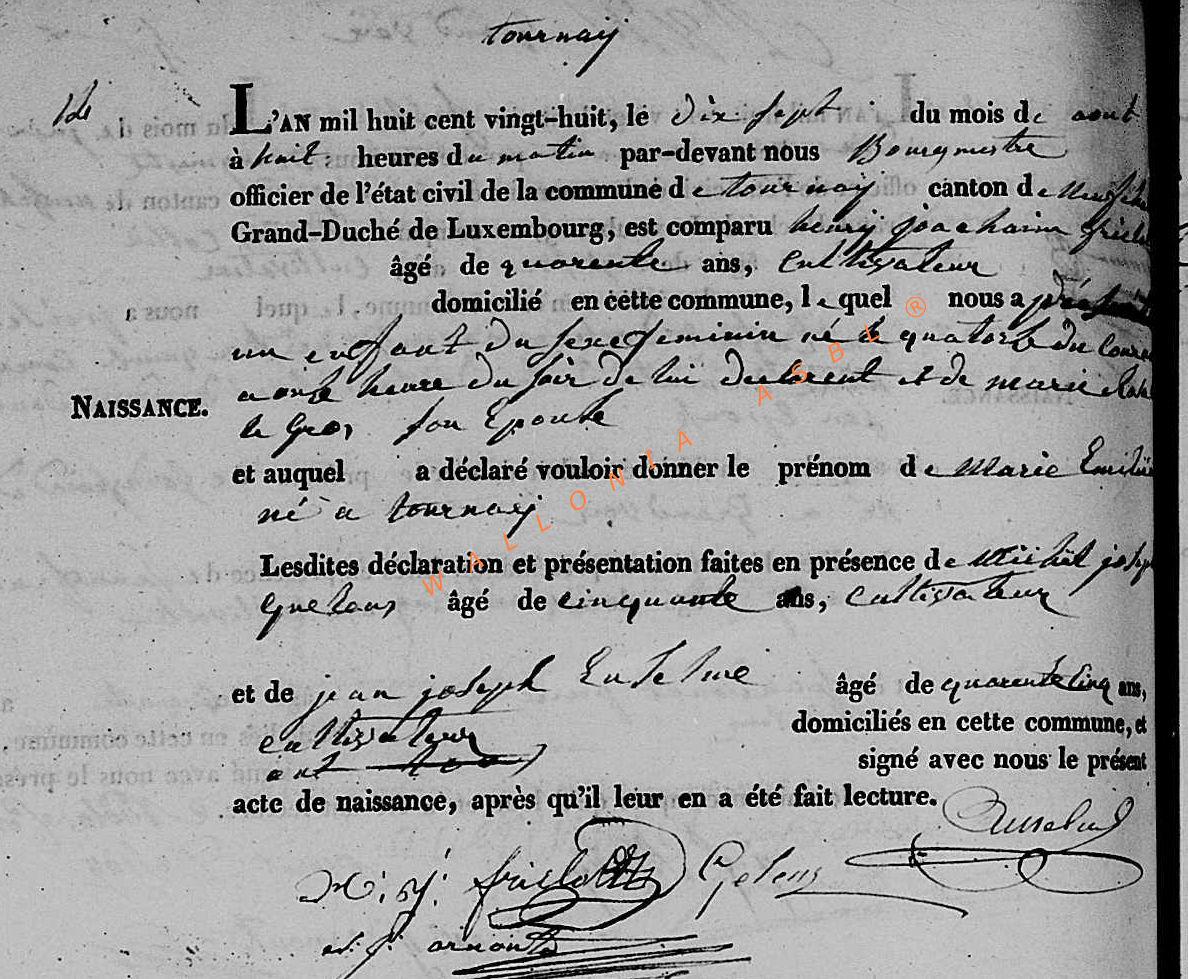 tournaÿ
L'AN mil huit cent vingt-huit, le dix sept du mois de aout
à huit heures du matin par-devant nous Bourgmestre
officier de l'état civil de la commune de tournaÿ canton de
Grand-Duché de Luxembourg, est comparu henrÿ joachaim
âgé de quarente ans, Cultivateur
domicilié en cette commune, lequel nous a
un enfant du sexe feminin né le quatorse du
a onse heure du soir de lui declarent et de marie
le Gros son Epouse
NAISSANCE.
et auquel a déclaré vouloir donner le prénom de Marie
né a tournaÿ
Lesdites déclaration et présentation faites en présence de Michel
âgé de cinquante ans, Cultivateur
et de jean joseph âgé de quarente cinq ans,
cultivateur domiciliés en cette commune, et
ont signé avec nous le présent
acte de naissance, après qu'il leur en a été fait lecture.
WALLONIA ASBL ®